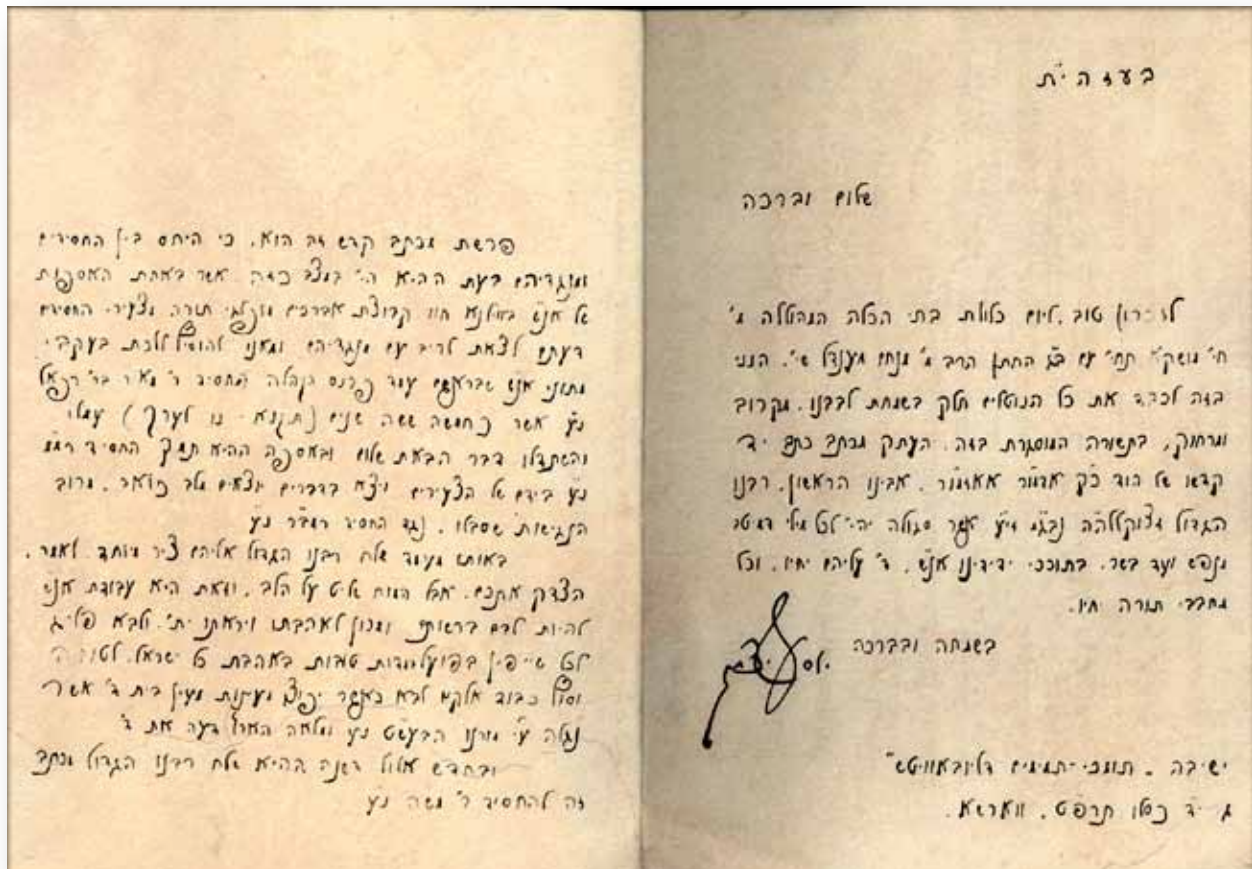 בעזה"ית
שלום וברכה
לזכרון טוב, ליום כלולת בתי הכלה המהוללה מ'
חי' מושקא תחי' עם ב"ג החתן הרב מ' מנחם מענדל שי'. הנני
בזה לכבד את כל הנוטלים חלק בשמחת לבבנו, מקרוב
ומרחוק, בתשורה המוסגרת בזה. העתק מכתב כתב יד
קדשו של הוד כ"ק אדמו"ר אאזמו"ר, אבינו הראשון, רבנו
הגדול זצוקללה"ה נבג"מ זי"ע אשר סגולה יהי' לכל מילי דמיטב
מנפש ועד בשר. בתוככי ידידינו אנ"ש, ד' עליהם יחיו, וכל
מחבבי תורה חיו.
בשמחה ובברכה
יוסף יצחק
ישיבה "תומכי-תמימים דליובאוויטש"
ג' י"ד כסלו תרפ"ט, ווארשא.
פרשת מכתב קדש זה הוא, כי היחס בין החסידים
ומנגדיהם בעת ההיא הי' במצב כזה, אשר באחת האספות
של אנ"ש בווילנא חוו קבוצת אברכים מופלגי תורה מצעירי החסידים
דעתם לצאת לריב עם מנגדיהם ומאנו להוסיף ללכת בעקבי
מתוני אנ"ש שבראשם עמד פרנס הקהלה החסיד ר' מאיר בר' רפאל
נ"ע אשר כחמשה ששה שנים (תקנא - נו לערך) עמלו
והשתדלו דבר הבאת שלום ובאספה ההיא תמך החסיד רמ"מ
נ"ע בידם של הצעירים ויצא בדברים יוצאים מלב כואב, מרוב
הנגישות שסבלו, נגד החסיד רמב"ר נ"ע
באותו מעמד שלח רבנו הגדול אליהם ציר מיוחד, לאמר,
הצדק אתכם, אבל המוח שליט על הלב, וזאת היא עבודת אנ"ש
להיות לבם ברשותם ומכוון לאהבתו ויראתו ית', ולבא פליג
לכל שייפין בפועל מדות טובות באהבת כל ישראל,
וסוף כבוד אלקים לבא כאשר יפוצו מעינות מעין בית ד' אשר
נגלה ע"י מורנו הבעש"ט נ"ע ומלאה הארץ דעה את ד'
ובחדש אלול דשנה ההיא שלח רבנו הגדול מכתב
זה להחסיד ר' משה נ"ע